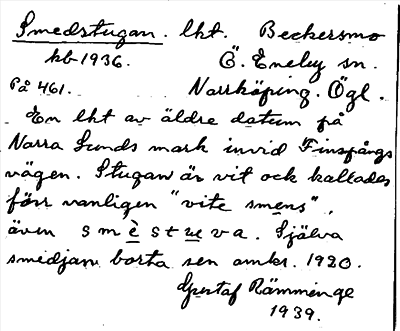 Smedstugan. lht. Beckersmo
kb 1936. Ö. Eneby sn.
På 461. Norrköping. Ögl.
En lht av äldre datum på
Norra Sunds mark invid Finspångs
vägen. Stugan är vit och kallades
förr vanligen "vite smens",
även s m è s t u e v a. Själva
smedjan borta sen omkr. 1920.
Gustaf Rämminge
1939.